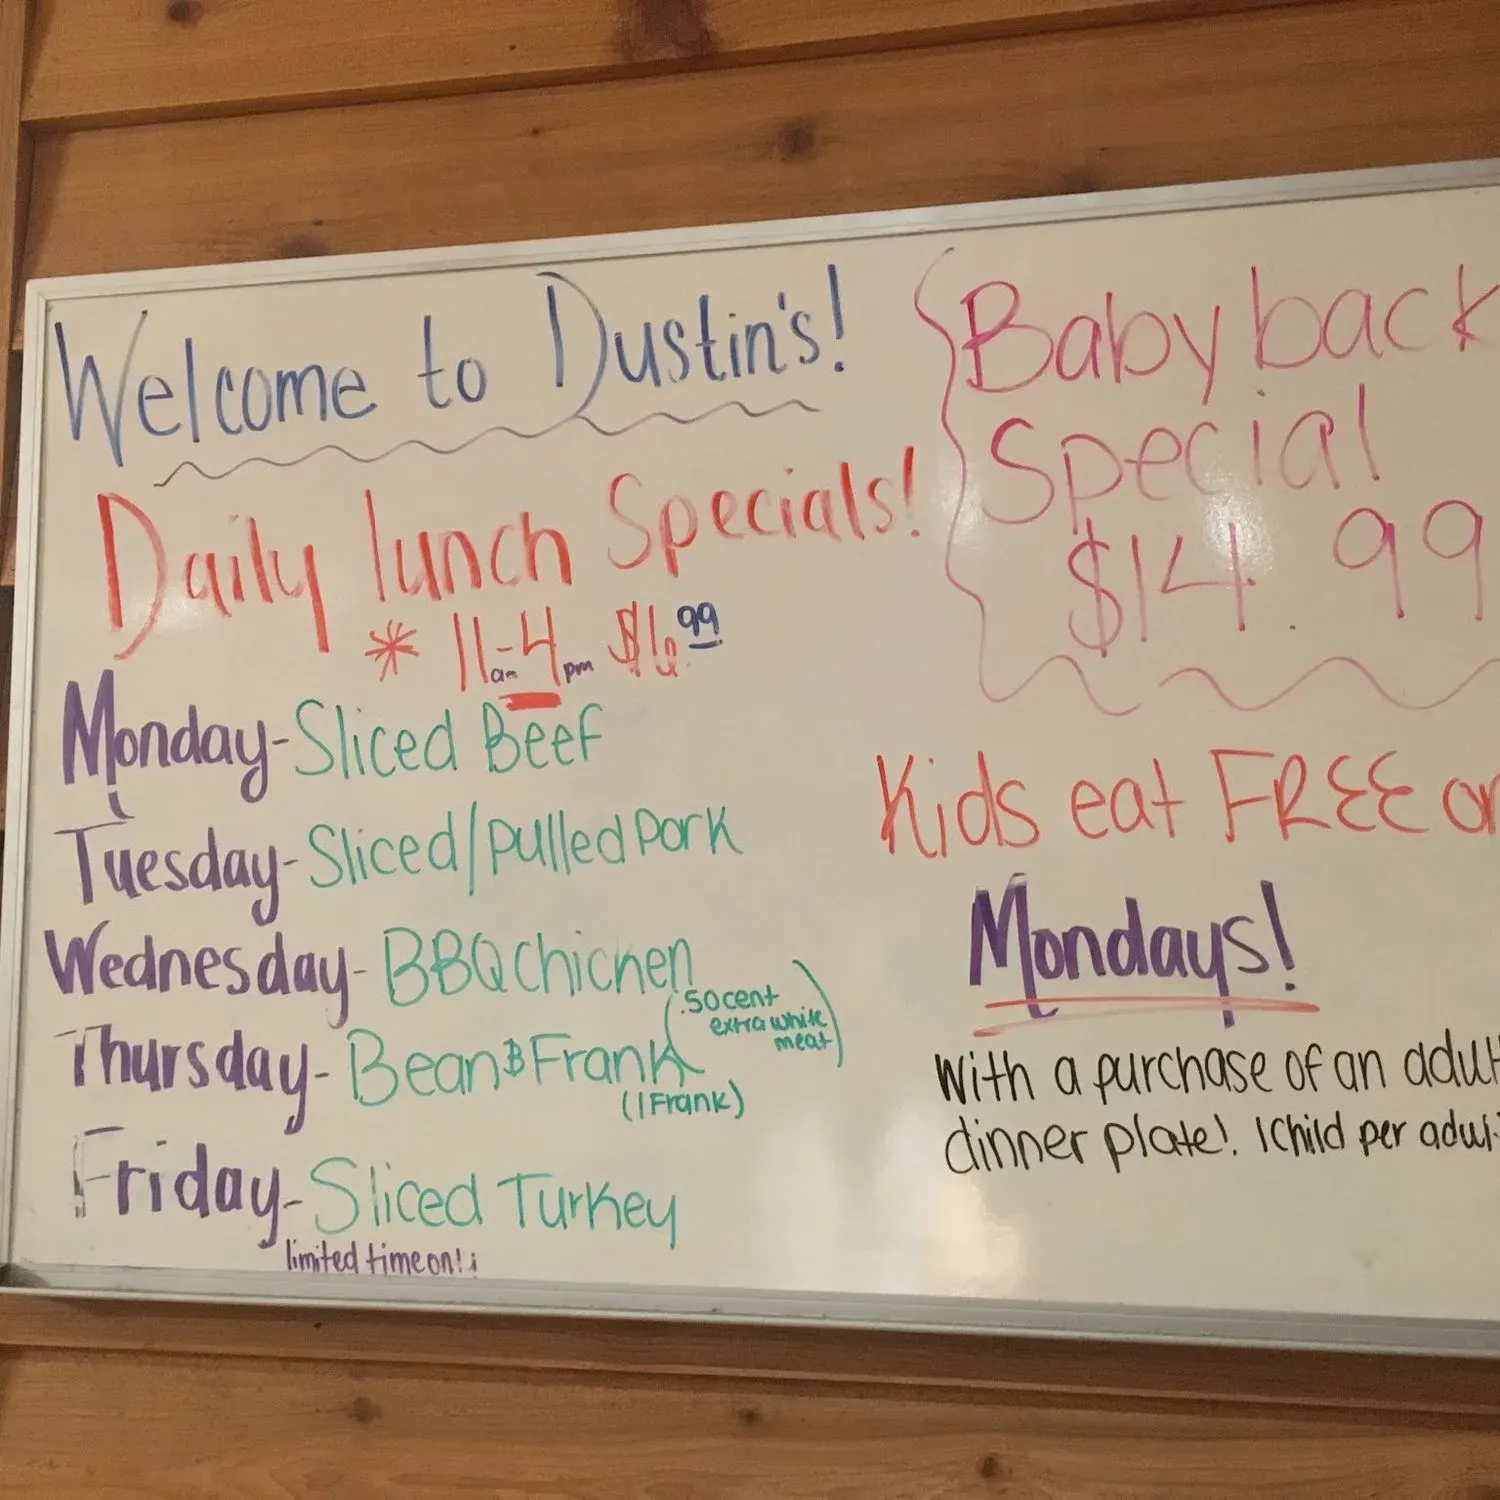 Welcome to Dustin's!
Daily lunch Specials!
* 11am-4pm $6.99
Monday-Sliced Beef
Tuesday-Sliced/pulled pork
Wednesday-BBQ Chicken
(.50 cent
extra white
meat)
Thursday-Bean & Frank
(1 Frank)
Friday-Sliced Turkey
limited time on!i
Baby back
Special
$14.99
Kids eat FREE on
Mondays!
With a purchase of an adult
dinner plate!. 1 child per adult